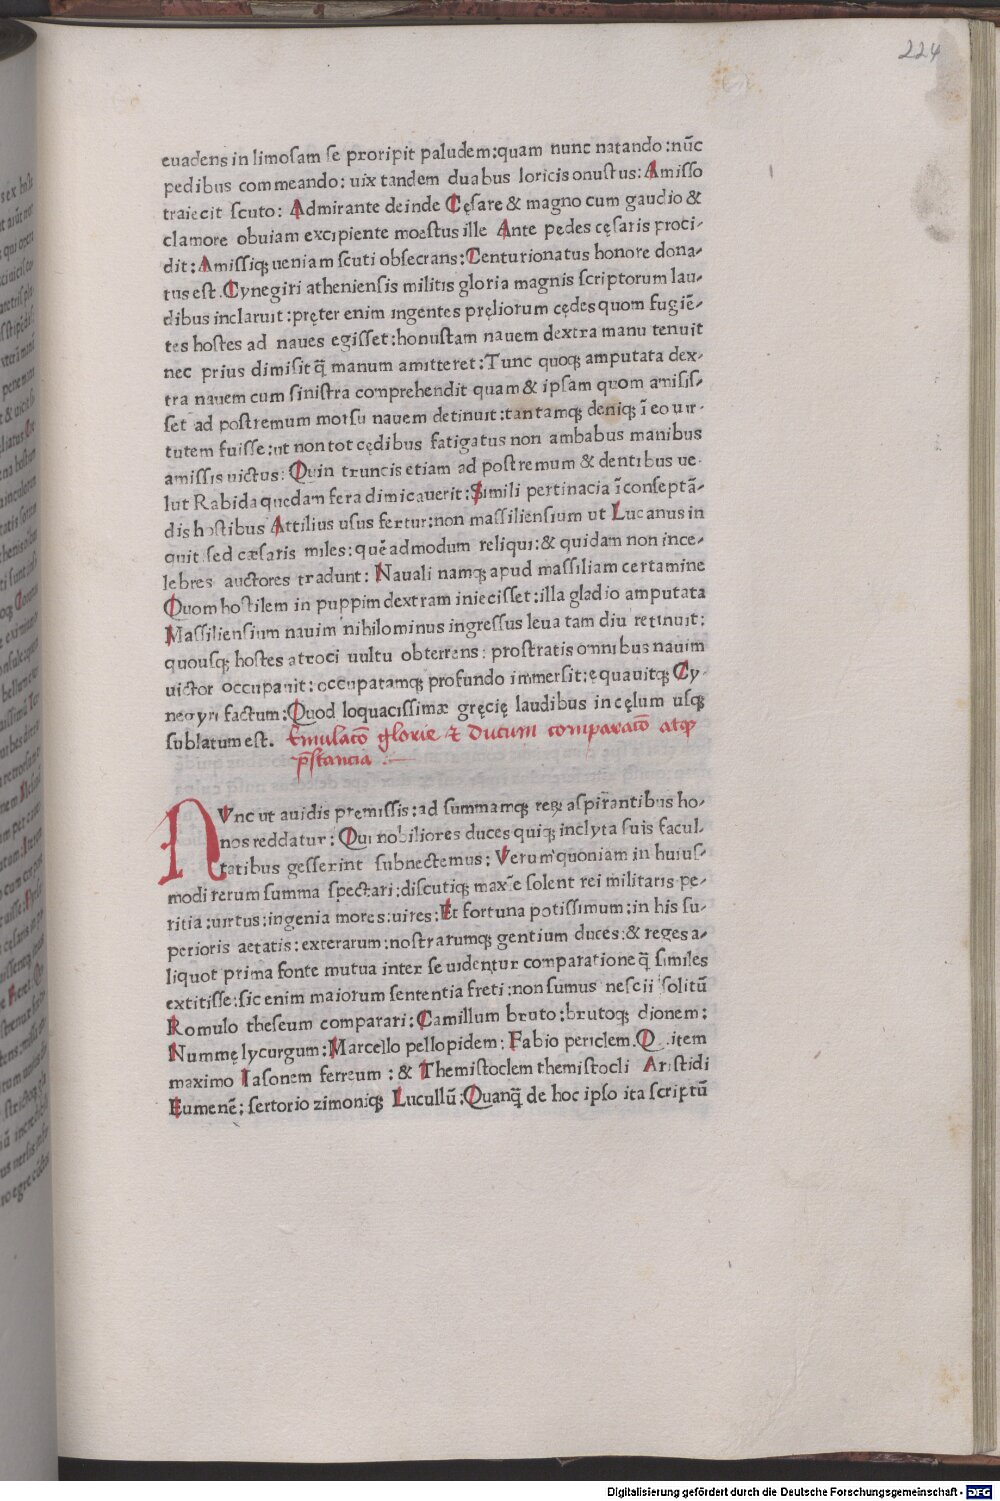 224
euadens in limosam se proripit paludem:quam nunc natando:nūc
pedibus commeando: uix tandem duabus loricis onustus: Amisso
traiecit scuto: Admirante deinde Cęsare & magno cum gaudio &
clamore obuiam excipiente moestus ille Ante pedes cęsaris proci-
dit: Amissiqꝫ ueniam scuti obsecrans: Centurionatus honore dona-
tus est. Cynegiri atheniensis militis gloria magnis scriptorum lau-
dibus inclaruit :pręter enim ingentes pręliorum cędes quom fugiē-
tes hostes ad naues egisset: honustam nauem dextra manu tenuit
nec prius dimisit q̄ manum amitteret: Tunc quoqꝫ amputata dex-
tra nauem cum sinistra comprehendit quam & ipsam quom amisis-
set ad postremum morsu nauem detinuit: tantamqꝫ deniqꝫ ī eo uir-
tutem fuisse :ut non tot cędibus fatigatus non ambabus manibus
amissis uictus: Quin truncis etiam ad postremum & dentibus ue-
lut Rabida quedam fera dimicauerit: Simili pertinacia ī conseptā-
dis hostibus Attilius usus fertur: non massiliensium ut Lucanus in
quit sed cæsaris miles: quē admodum reliqui: & quidam non ince-
lebres auctores tradunt: Nauali namqꝫ apud massiliam certamine
Quom hostilem in puppim dextram iniecisset: illa gladio amputata
Massiliensium nauim nihilominus ingressus leua tam diu retinuit:
quousqꝫ hostes atroci uultu obterrens: prostratis omnibus nauim
uictor occupauit: occupatamqꝫ profundo immersit: ęquauitqꝫ Cy-
negyri factum: Quod loquacissimæ gręcię laudibus in cęlum usqꝫ
sublatum est. Emulacō glorie & Ducum comparacō atqꝫ
p̄stancia
NVnc ut auidis premissis: ad summamqꝫ reꝝ aspirantibus ho-
nos reddatur: Qui nobiliores duces quiqꝫ inclyta suis facul
tatibus gesserint subnectemus: Verum quoniam in huius-
modi rerum summa spectari: discutiqꝫ maxīe solent rei militaris pe-
ritia :uirtus: ingenia mores: uires: Et fortuna potissimum: in his su-
perioris aetatis: exterarum: nostrarumqꝫ gentium duces: & reges a-
liquot prima fonte mutua inter se uidentur comparatione q̄ similes
extitisse: sic enim maiorum sententia freti: non sumus nescii solitū
Romulo theseum comparari: Camillum bruto: brutoqꝫ dionem:
Nummę lycurgum: Marcello pellopidem: Fabio periclem. Q. item
maximo Iasonem ferreum : & Themistoclem themistocli Aristidi
Eumenē; sertorio zimoniqꝫ Lucullū: Quanq̄ de hoc ipso ita scriptū
Digitalisierung gefördert durch die Deutsche Forschungsgemeinschaft - DFG